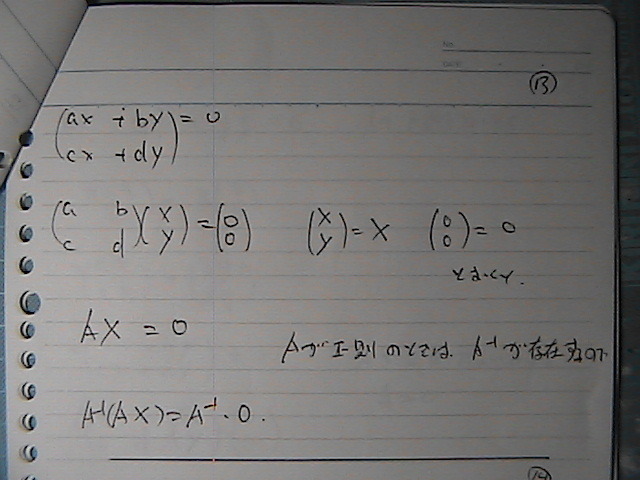 No.
Date
⑬
(ax + by
cx + dy) = 0
(a b
c d)(x
y) = (0
0) (x
y) = X (0
0) = 0
とおくと.
AX = 0
Aが正則のときは. A⁻¹が存在するので
A⁻¹(AX) = A⁻¹・0.
⑭